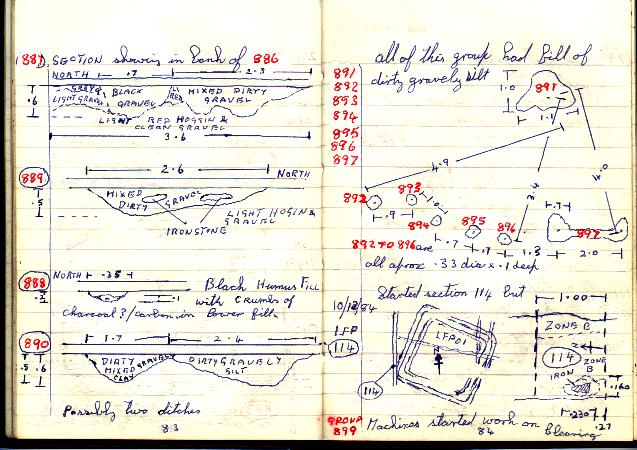 887 SECTION showing in bank of 886
NORTH .7 2.3
GREY & BLACK MIXED DIRTY
LIGHT GRAVEL GRAVEL GRAVEL
.6
LIGHT RED HOGGIN &
CLEAN GRAVEL
3.6
889
2.6 NORTH
MIXED GRAVEL
DIRTY
.5
LIGHT HOGIN &
GRAVEL
IRONSTONE
888 NORTH .35 Black Humus Fill
.1 with crumbs of
charcoal?/carbon in lower fill.
890 1.7 2.4
DIRTY GRAVELY DIRTY GRAVELY
MIXED SILT
CLAY
.5 .6
Possibly two ditches
83
all of this group had fill of
891 dirty gravely silt
892 1.0 891
893 1.1
894
895
896
897
4.9 3.4 4.0
892 893 1.0
.9 894 895 896 .7 897
.7 .7 1.3 2.0
892 TO 896 are
all aprox .33 dia x .1 deep
10/12/84 Started section 114 but
1.00
LFP01 ZONE B
114 114 ZONE
B
IRON
114 .160
.230 .27
GROUP
899 Machines started work on clearing
84